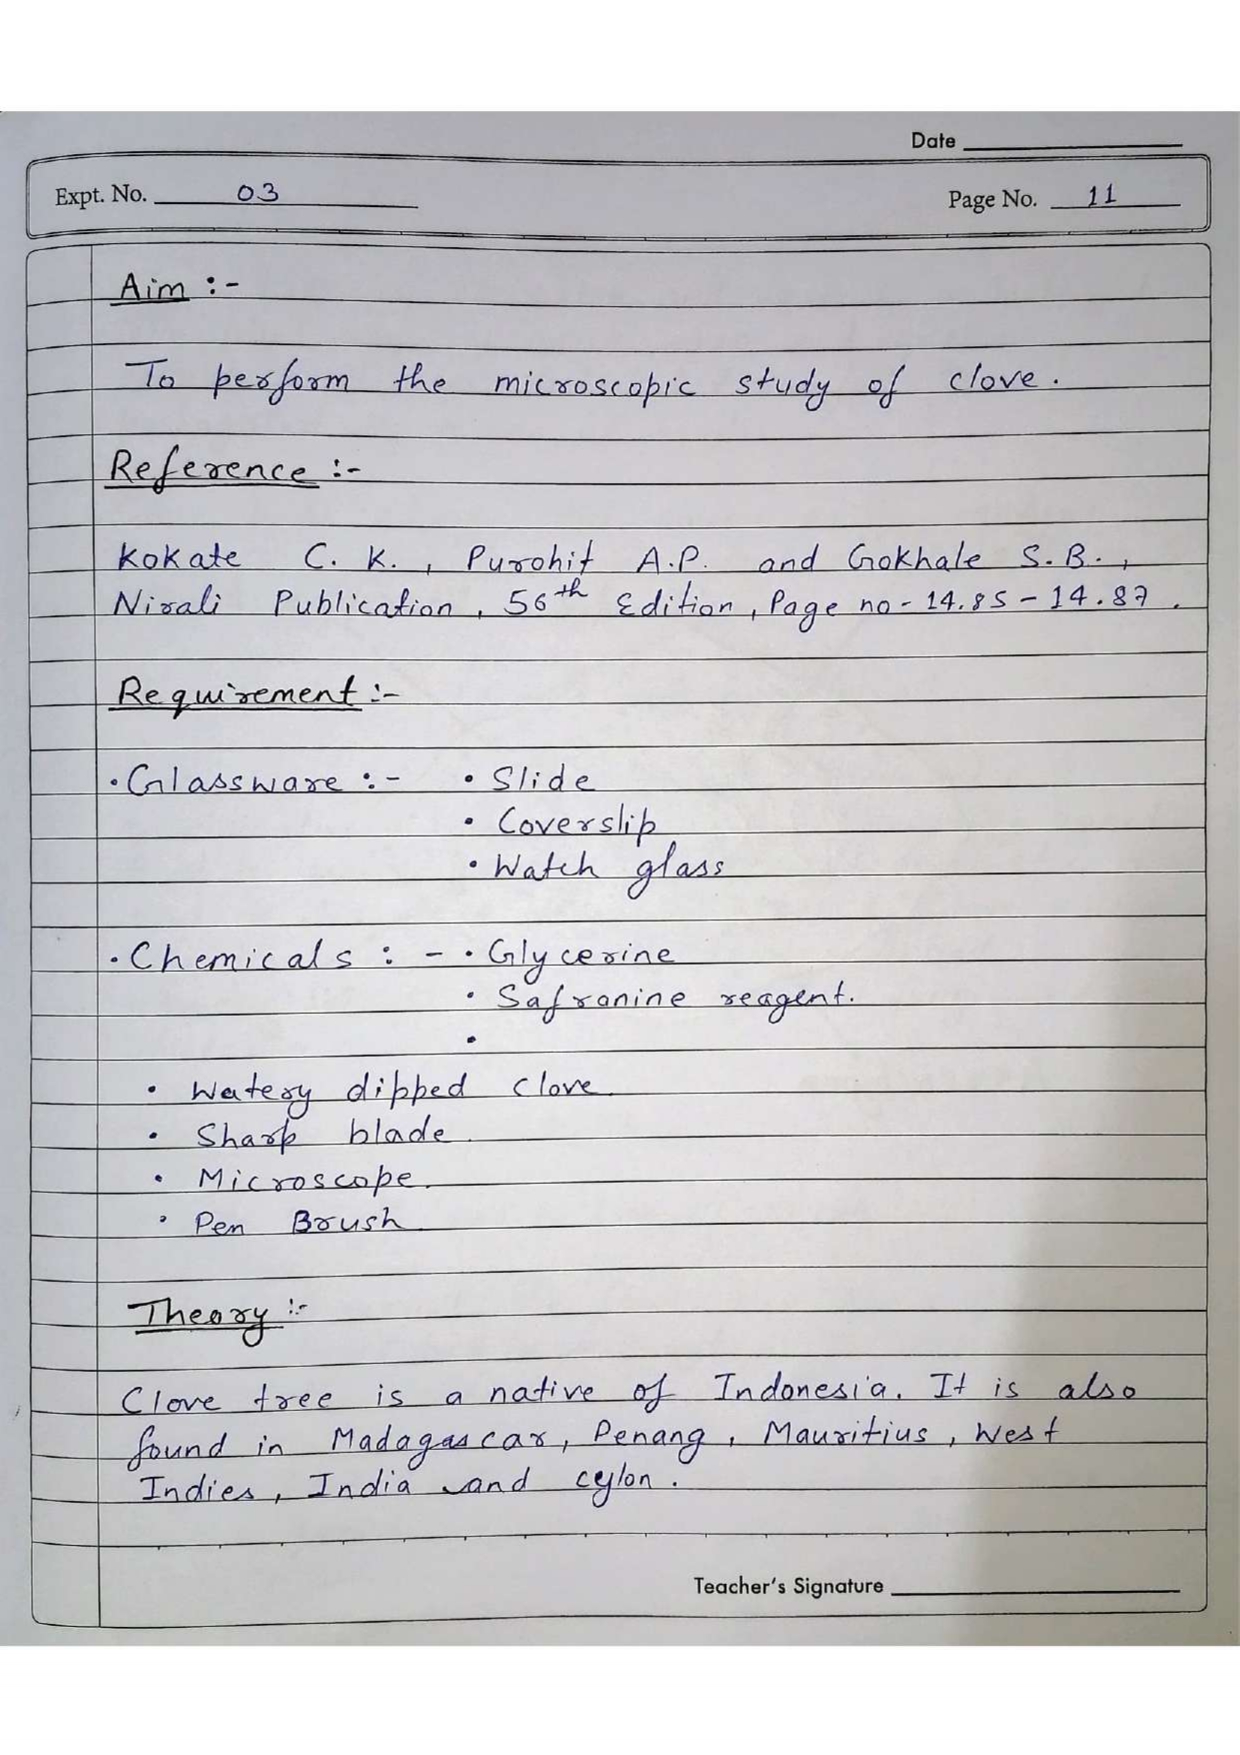 Date
Expt. No. 03
Page No. 11
Aim :-
To perform the microscopic study of clove.
Reference :-
Kokate C. K., Purohit A.P. and Gokhale S.B.,
Nirali Publication, 56th Edition, Page no - 14.85 - 14.87.
Requirement :-
• Glassware :- • Slide
• Coverslip
• Watch glass
• Chemicals : - • Glycerine
• Safranine reagent.
•
• Watery dipped clove.
• Sharp blade.
• Microscope.
• Pen Brush.
Theory :-
Clove tree is a native of Indonesia. It is also
found in Madagascar, Penang, Mauritius, West
Indies, India and ceylon.
Teacher's Signature